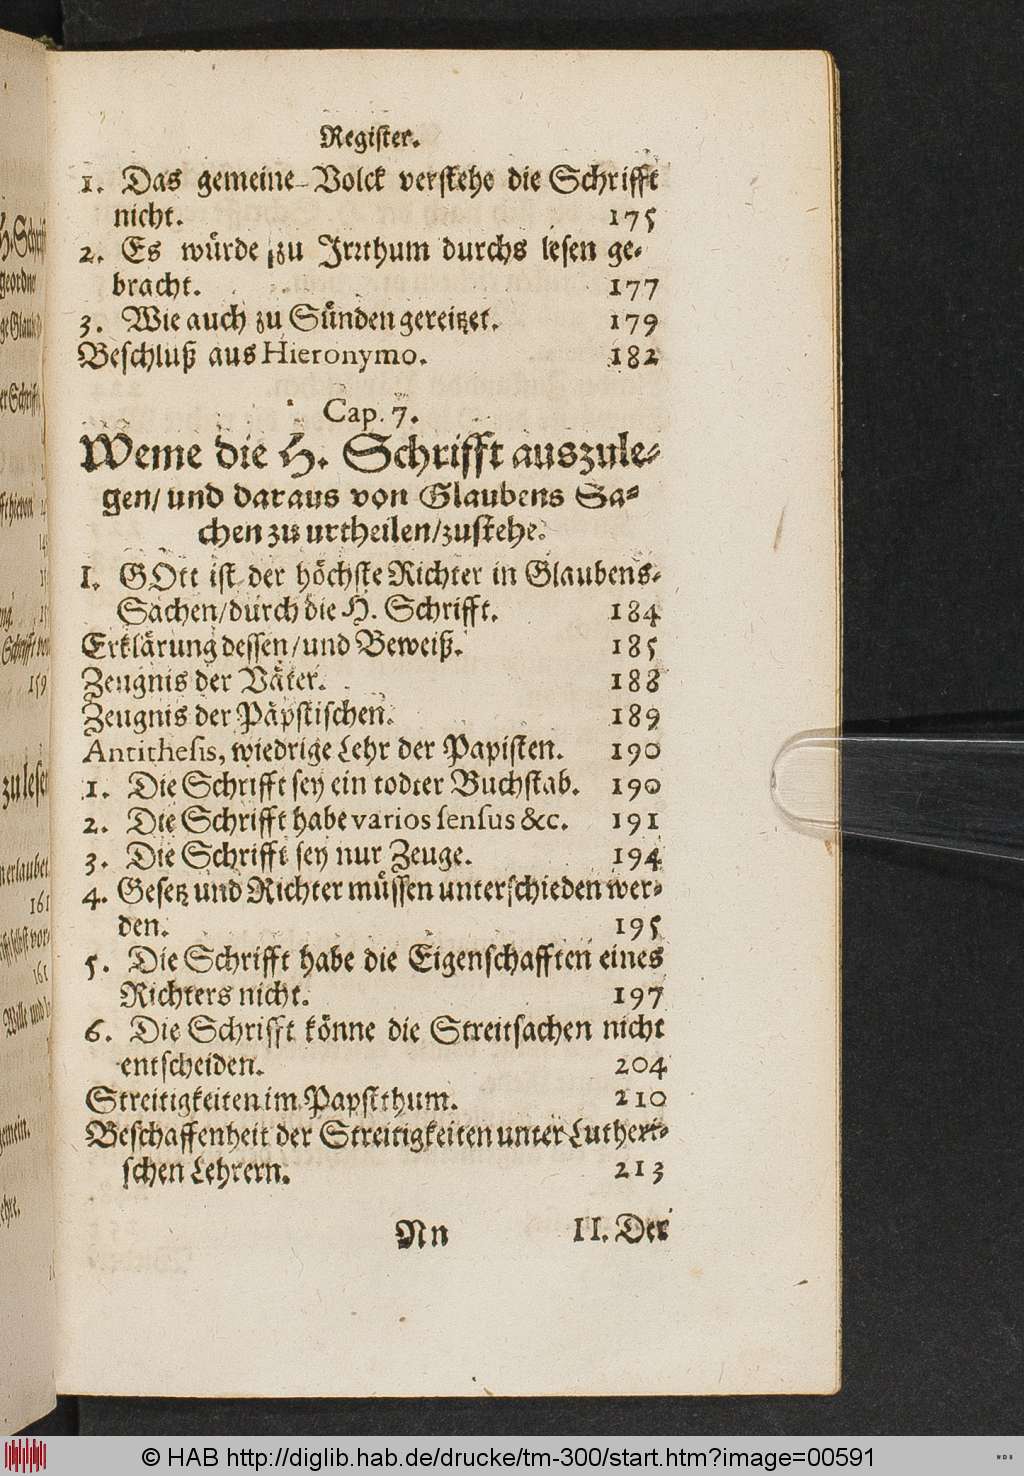 Register.
1. Das gemeine Volck verstehe die Schrifft
nicht. 175
2. Es würde zu Irrthum durchs lesen ge-
bracht. 177
3. Wie auch zu Sünden gereitzet. 179
Beschluß aus Hieronymo. 182
Cap. 7.
Weme die H. Schrifft auszule-
gen/ und daraus von Glaubens Sa-
chen zu urtheilen/ zustehe.
I. GOtt ist der höchste Richter in Glaubens-
Sachen/ durch die H. Schrifft. 184
Erklärung dessen/ und Beweiß. 185
Zeugnis der Väter. 188
Zeugnis der Päpstischen. 189
Antithesis, wiedrige Lehr der Papisten. 190
1. Die Schrifft sey ein todter Buchstab. 190
2. Die Schrifft habe varios sensus &c. 191
3. Die Schrifft sey nur Zeuge. 194
4. Gesetz und Richter müssen unterschieden wer-
den. 195
5. Die Schrifft habe die Eigenschafften eines
Richters nicht. 197
6. Die Schrifft könne die Streitsachen nicht
entscheiden. 204
Streitigkeiten im Papstthum. 210
Beschaffenheit der Streitigkeiten unter Lutheri-
schen Lehrern. 213
Nn II. Der
© HAB http://diglib.hab.de/drucke/tm-300/start.htm?image=00591